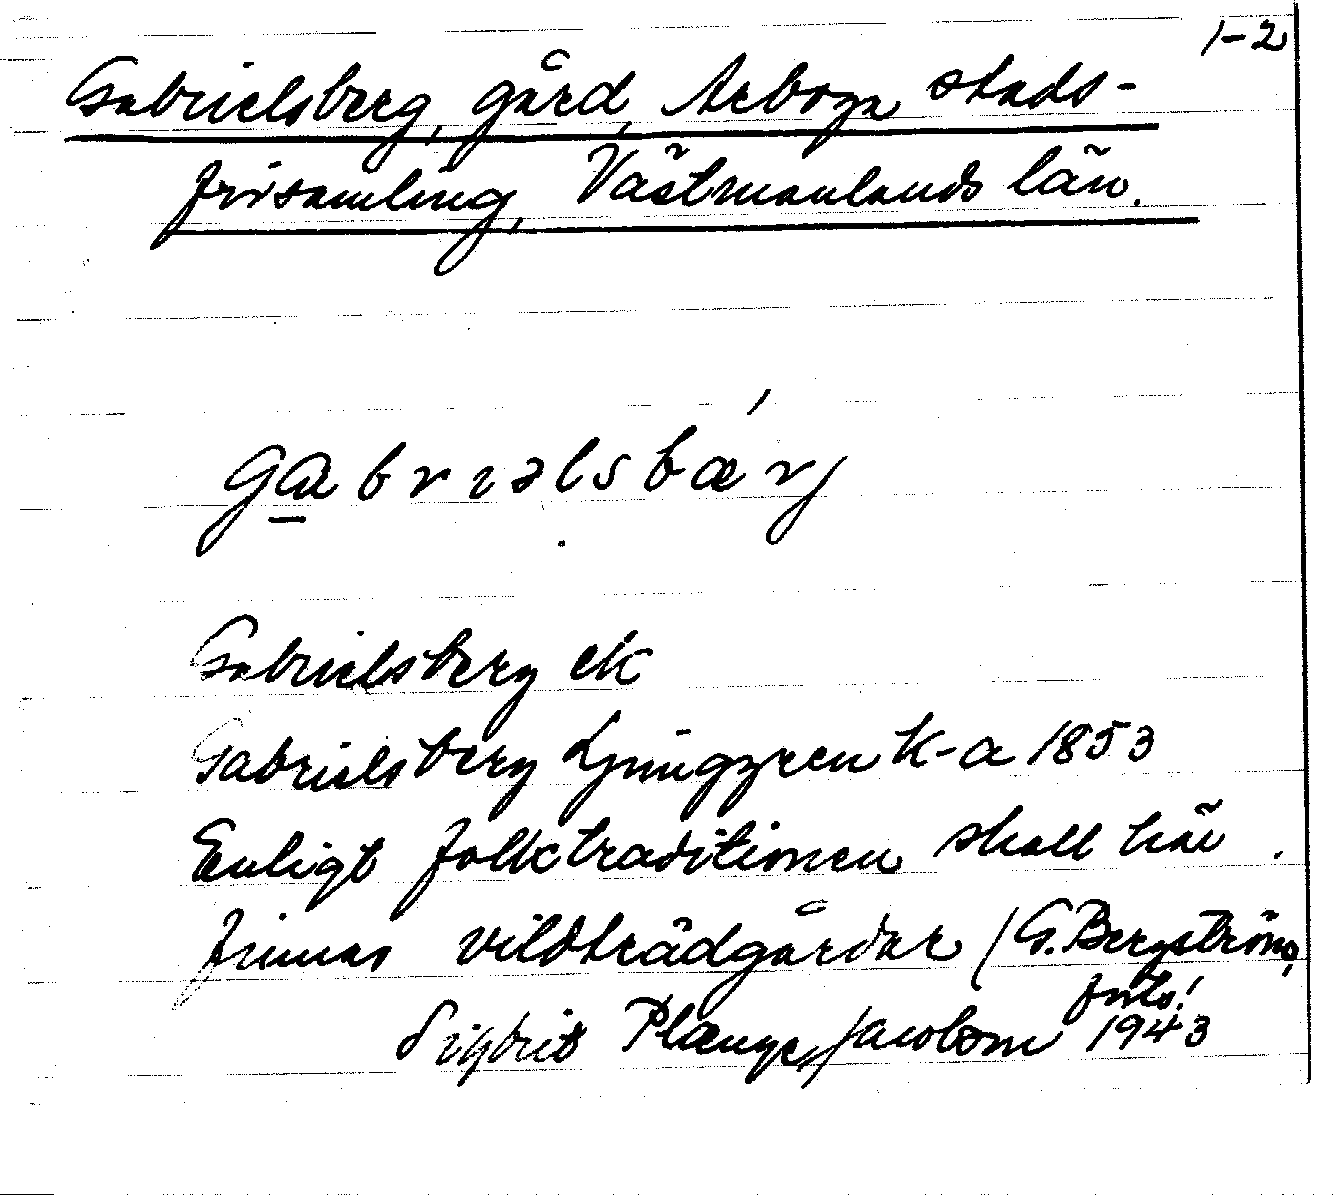 1-2
Gabrielsberg, gård, Arboga stads-
församling, Västmanlands län.
gabriəlsbǽrj
Gabrielsberg ek
Gabrielsberg Ljunggren K-a 1853
Enligt folktraditionen skall här
finnas vildträdgårdar (G. Bergström,
forts!
Sigbrit Plænge Jacobson 1943